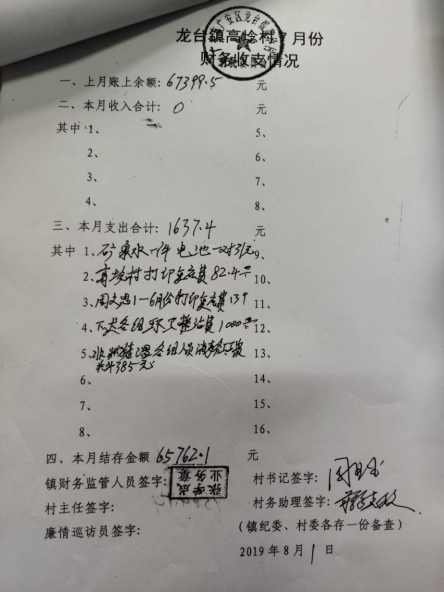 龙台镇高埝村7月份
财务收支情况
一、上月账上余额：67399.5 元
二、本月收入合计：0 元
其中 1、 5、
2、 6、
3、 7、
4、 8、
三、本月支出合计：1637.4 元
其中 1、矿泉水一件 电池一对31元 9、
2、村打印复印费82.4元 10、
3、周文忠1-6月份打印复印费139 11、
4、各组环卫整治费1000元 12、
5、非洲猪瘟各组人员 13、
385元
6、 14、
7、 15、
8、 16、
四、本月结存金额 65762.1 元
镇财务监管人员签字： 村书记签字：
业务章
村主任签字： 村务助理签字：
廉情巡访员签字： （镇纪委、村委各存一份备查）
2019年8月1日